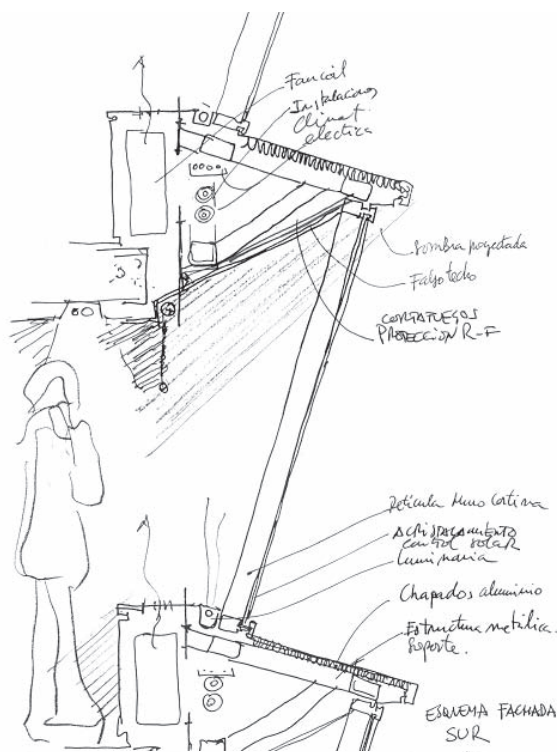 Fancoil
Instalacions
Climat
electrica
Sombra proyectada
Falso techo
CORTAFUEGOS
PROTECCIÓN R-F
Retícula Muro Cortina
ACRISTALAMIENTO
CONTROL SOLAR
Luminaria
Chapados aluminio
Estructura metálica.
Soporte.
ESQUEMA FACHADA
SUR